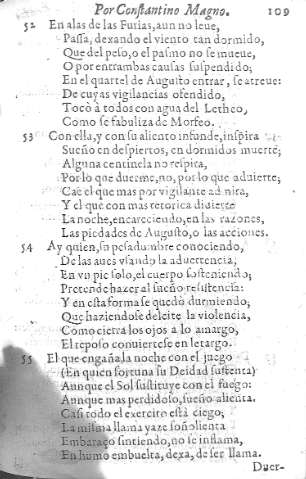 Por Constantino Magno. 109
52 En alas de las Furias, aun no leue,
Passa, dexando el viento tan dormido,
Que del peso, o el pasmo no se mueue,
O por entrambas causas suspendido;
En el quartel de Augusto entrar, se atreue:
De cuyas vigilancias ofendido,
Tocò à todos con agua del Letheo,
Como se fabuliza de Morfeo.
53 Con ella, y con su aliento infunde, inspira
Sueño en despiertos, en dormidos muerte;
Alguna centinela no respira,
Por lo que duerme, no, por lo que aduierte;
Cae el que mas por vigilante admira,
Y el que con mas retorica diuierte
La noche, encareciendo, en las razones,
Las piedades de Augusto, o las acciones.
54 Ay quien, su pesadumbre conociendo,
De las aues vsando la aduertencia;
En vn pie solo, el cuerpo sosteniendo;
Pretende hazer al sueño resistencia:
Y en esta forma se quedò durmiendo,
Que haziendose deleite la violencia,
Como cierra los ojos a lo amargo,
El reposo conuiertese en letargo.
55 El que engaña la noche con el juego
(En quien fortuna su Deidad sustenta)
Aunque el Sol sustituye con el fuego:
Aunque mas perdidoso, sueño alienta.
Casi todo el exercito està ciego,
La misma llama yaze soñolienta
Embaraço sintiendo, no se inflama,
En humo embuelta, dexa, de ser llama.
Duer-